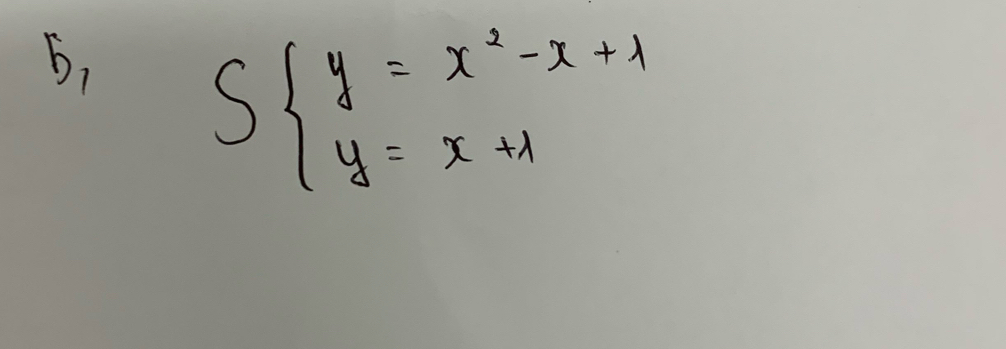 5,
S { y = x² - x + 1
y = x + 1